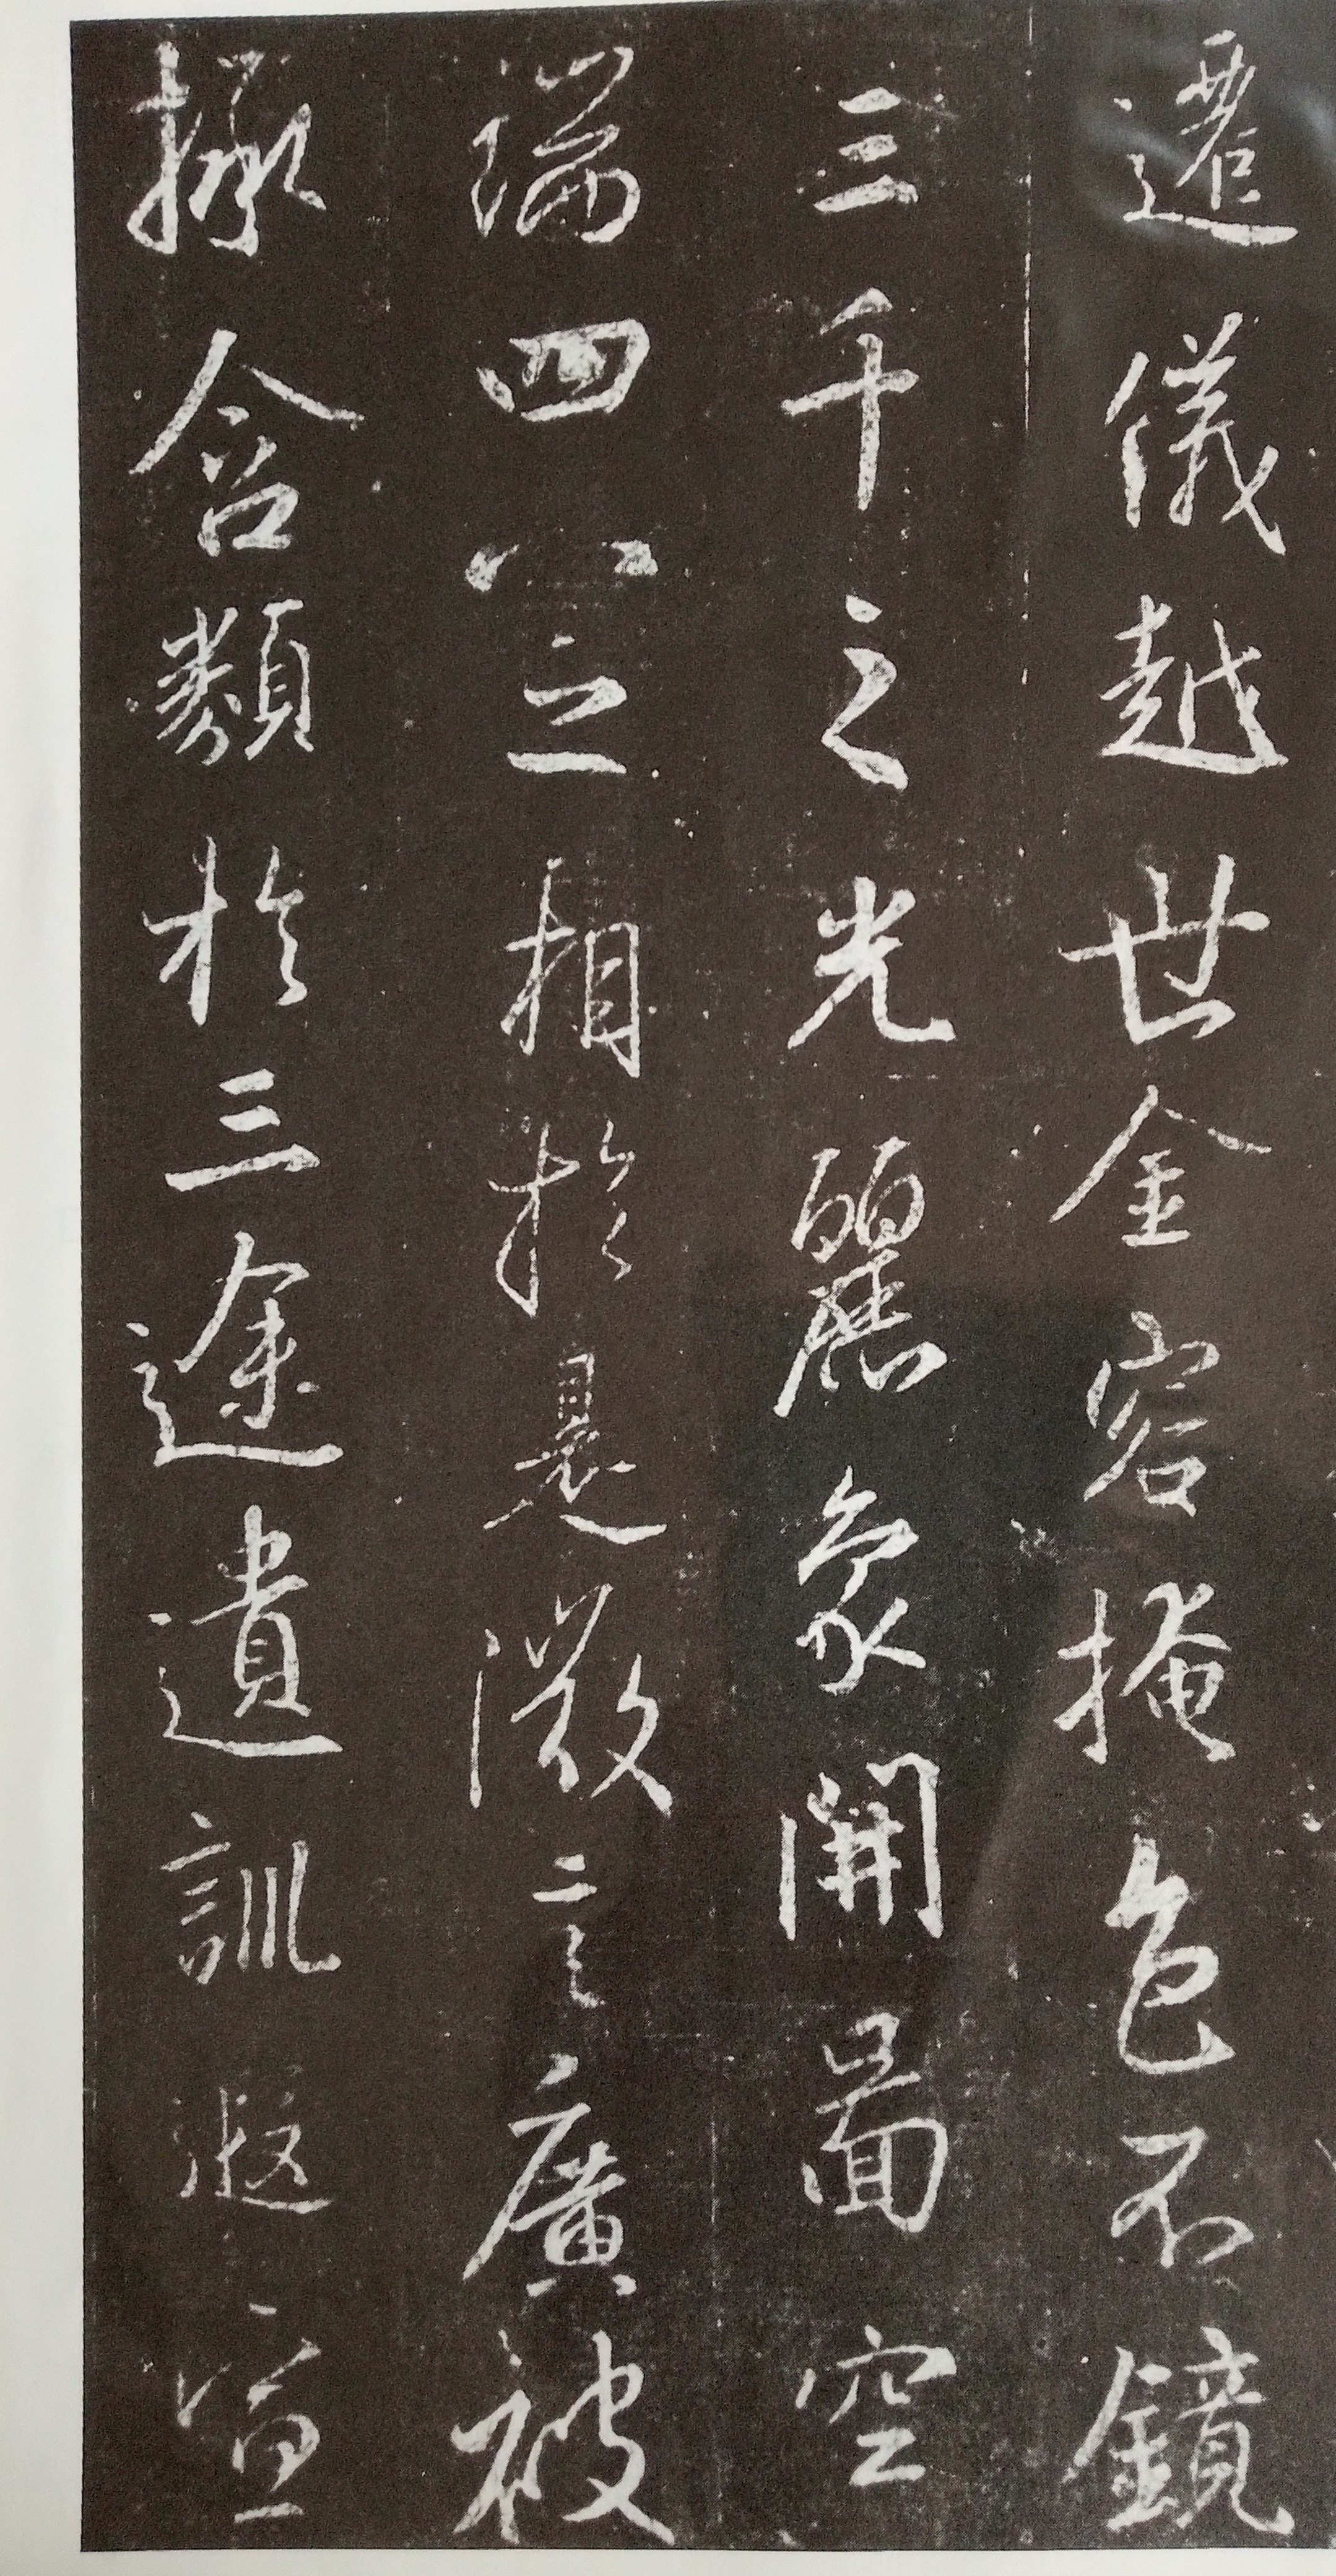 遷儀越世金容掩色不鏡
三千之光麗象開啚空
端四八之相於是微言廣被
拯含類於三途遺訓遐宣